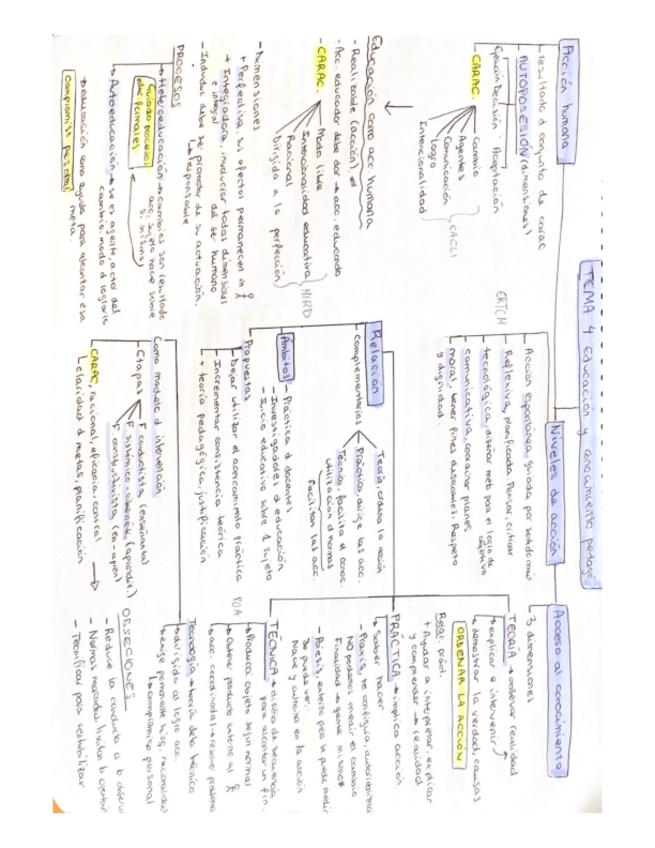 TEMA 4 Educación y conocimiento pedagó
Acción humana
resultado d conjunto de carac
AUTOPOSESIÓN (dimensiones)
Aceptación
CARAC.
Cambio
Agentes
Comunicación
Logro
Intencionalidad
CACLI
Educación como acc humana
- Realizable (acción)
- Acc. educador debe dar → acc. educando
- CARAC.
Modo libre
Intencionalidad educativa
Racional
Dirigida a la perfección
MIRD
- Dimensiones
+ Perfectiva, sus efectos permanecen in
+ Integradora, involucrar todas dimensions
e integral del ser humano
- Individuo debe ser promotor de su actuación.
↳ responsable
PROCESOS
→ Heteroeducación → cambios son resultado
acc. sujeto hace sobre
si mismos
Guiado procesos
educ formales
→ Autoeducación → se es agente, actor del
cambio. modo d lograrlo
→ educación como ayuda para alcanzar esa
meta.
compromiso personal
Niveles de acción
ERTCM
Acción espontánea, guiada por sentido común
Reflexiva, planificada. Pensar, criticar
tecnológica, diseñar meb para el logro de
objetivo
comunicativa, coordinar planes
moral, tener fines deseables. Respeto
y dignidad.
Relación
complementarias
Teoría, ordena la acción
Práctica, dirige las acc.
Técnica, facilita el conoc.
utilización d normas
facilitan las acc.
Ámbitos
- Práctica d docentes
- Investigadores d educación
- Juicio educativo sobre 1 sujeto
Propuestas
Dejar utilizar el acercamiento práctica
Incrementar consistencia teórica
+ teoría pedagógica, justificación
Como modelo d intervención
Etapas
F conductista (enseñanza)
F. sistémico-cibernét. (aprender)
F constructivista (en-apren)
CARAC, racional, eficacia, control
↳ claridad d metas, planificación
Acceso al conocimiento
3 dimensiones
TEORÍA → observar realidad
→ explicar e intervenir
→ demostrar la verdad, causas
ORDENAR LA ACCIÓN
Relac. práct.
+ Ayudar a interpretar, explicar
y comprender → realidad
PRÁCTICA → implica acción
→ Saber hacer
- Praxis, te configura,
NO podemos medir el cambio
Finalidad → gente misma
- Poiesis, exterior pero se puede medir
Se puede ver.
Nace y culmina en la acción
TÉCNICA → diseño de secuencia
para alcanzar un fin.
POA
→ Producir objeto según normas
→ Obtener producto externo al
→ acc. coordinadas → resolver problema
Tecnología → teoría dela técnica
→ dirigida al logro acc.
→ exige permanente racionalidad
↳ compromiso personal
OBSECIONES
- Reduce la conducta a lo observ
- Normas marcadas limitan la creativ
- Tecnificar para rentabilizar